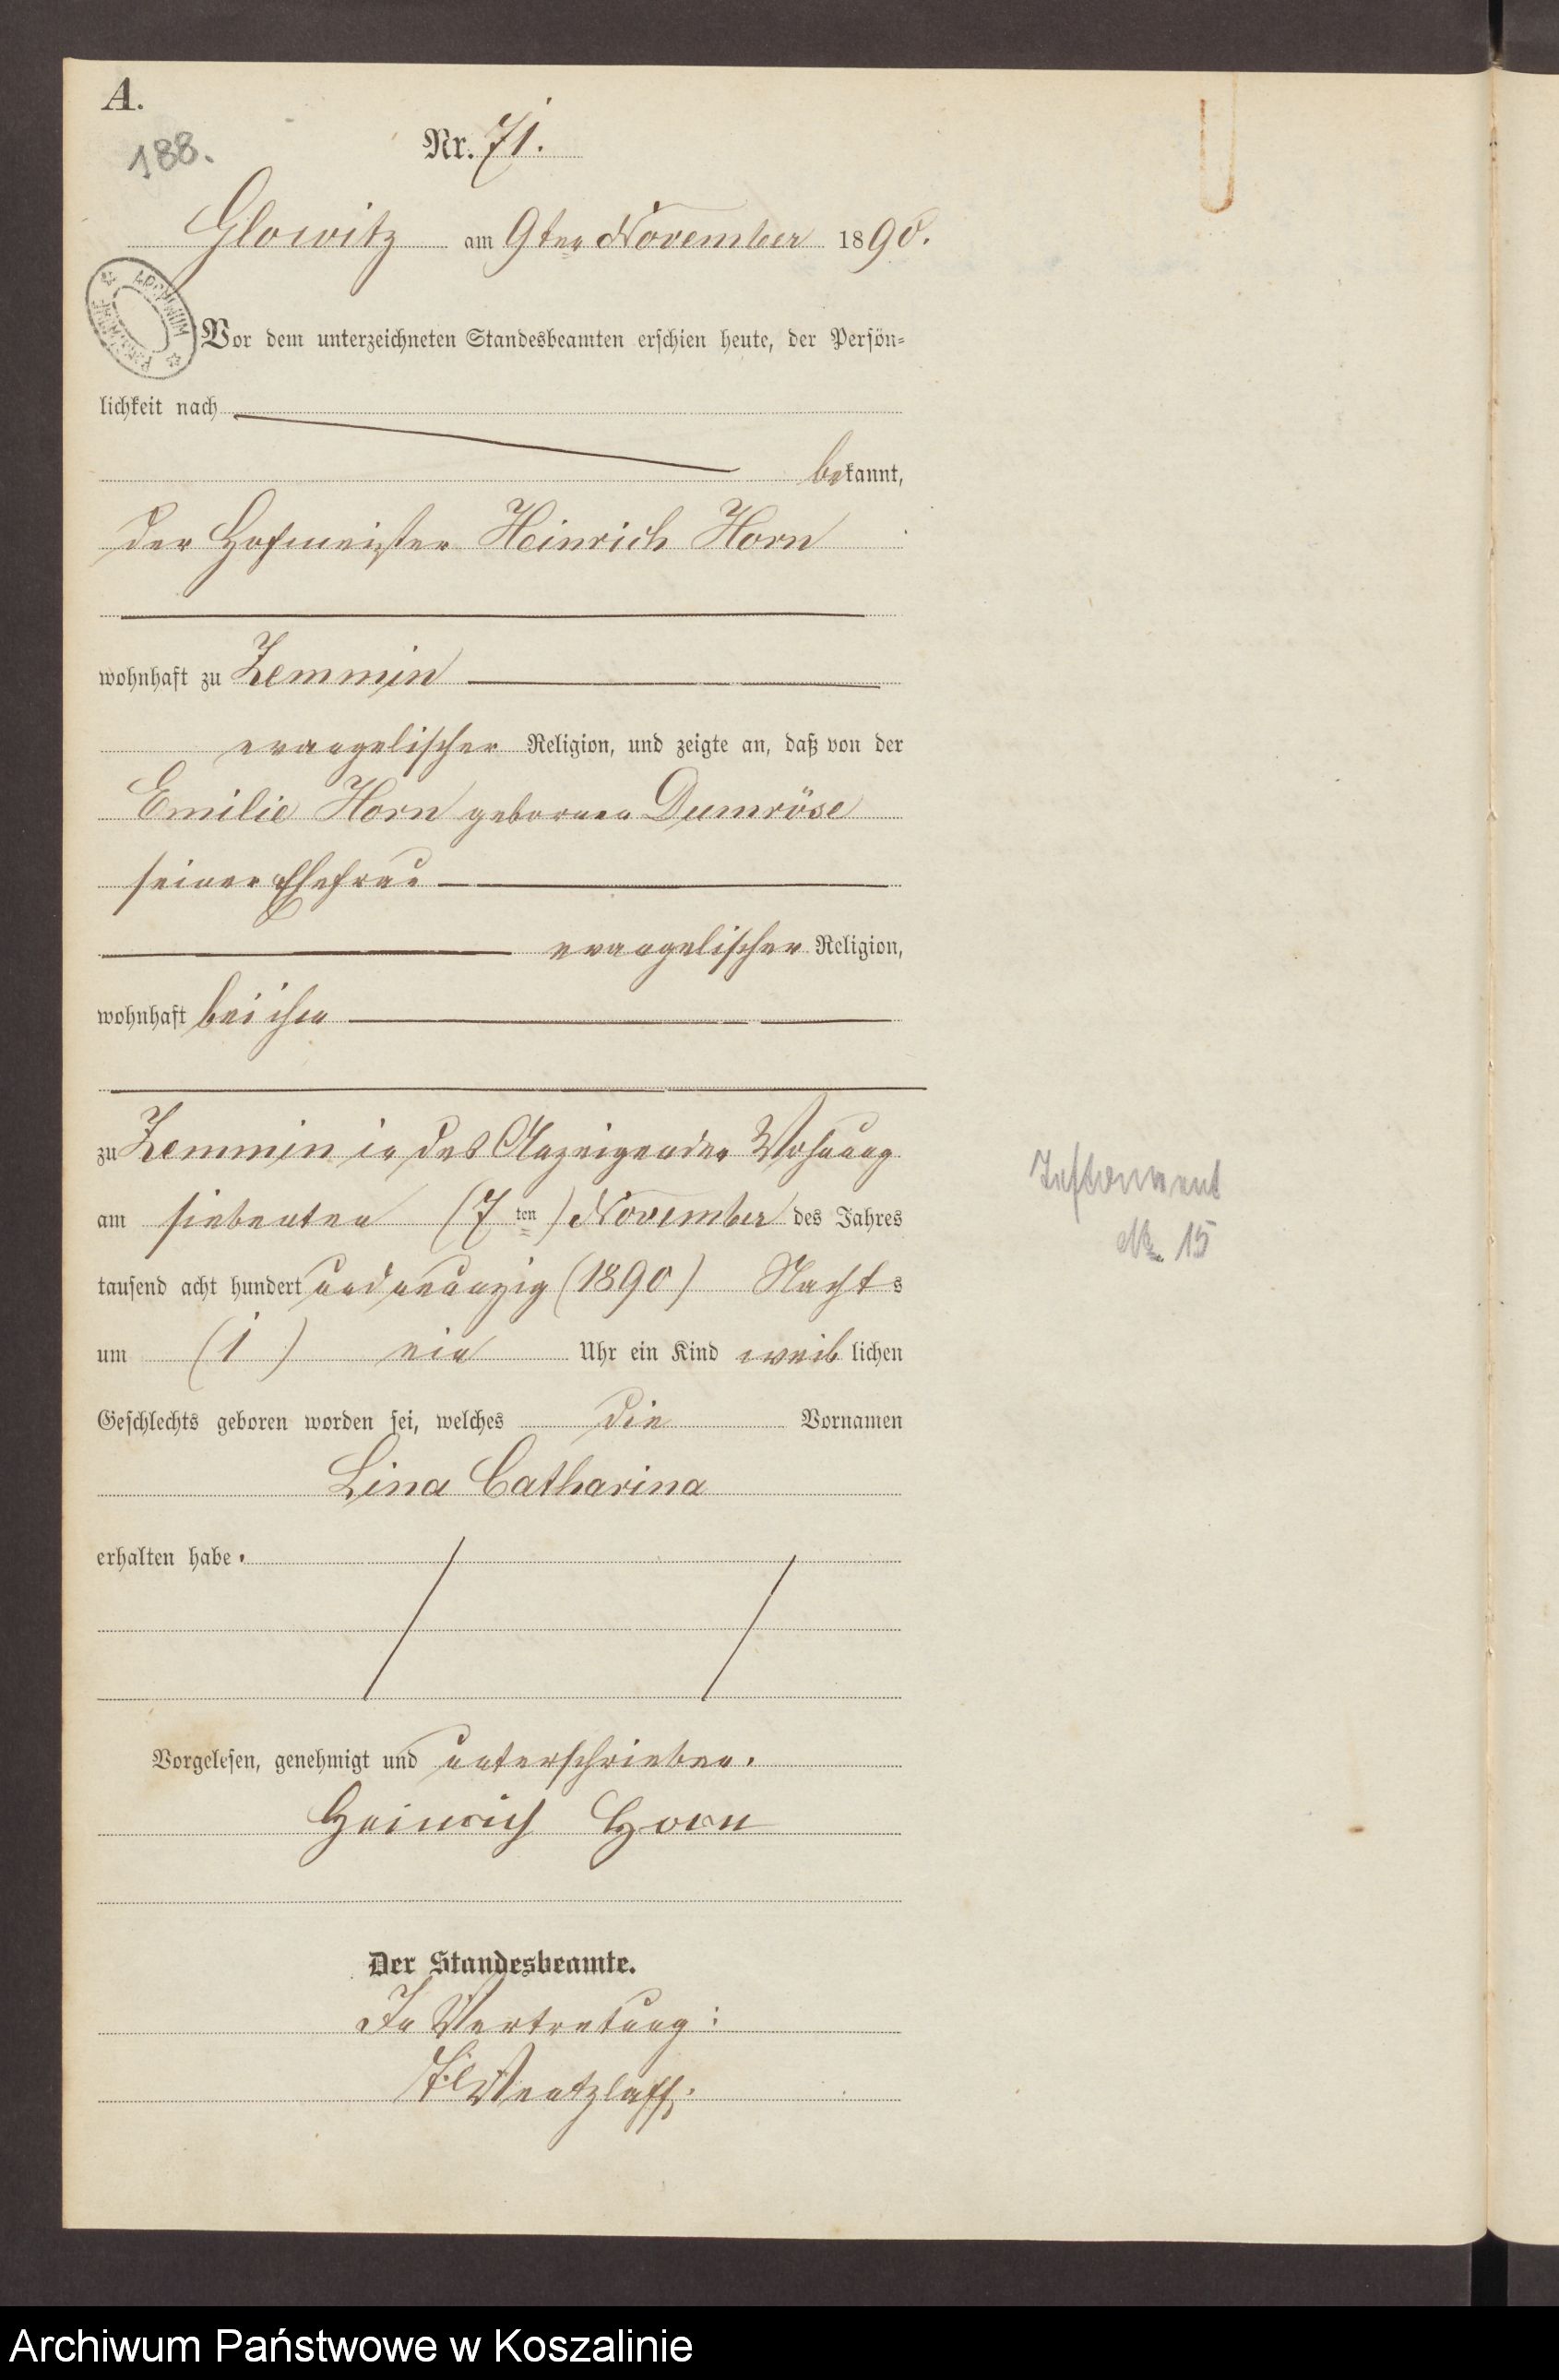 A.
188.
Nr. 71.
Glowitz am 9ten November 1890.
Vor dem unterzeichneten Standesbeamten erschien heute, der Persön-
lichkeit nach
bekannt,
der Hofmeister Heinrich Horn
wohnhaft zu Zemmin
evangelischer Religion, und zeigte an, daß von der
Emilie Horn gebornen Dumröse
seiner Ehefrau
evangelischer Religion,
wohnhaft bei ihm
zu Zemmin in des Anzeigenden Wohnung
am siebenten (7ten) November des Jahres
tausend acht hundert und neunzig (1890) Nachts
um (1) ein Uhr ein Kind weiblichen
Geschlechts geboren worden sei, welches die Vornamen
Lina Catharina
erhalten habe.
Vorgelesen, genehmigt und unterschrieben.
Heinrich Horn
Der Standesbeamte.
In Vertretung:
Wentzlaff.
No. 15
ARCHIWUM
Archiwum Państwowe w Koszalinie